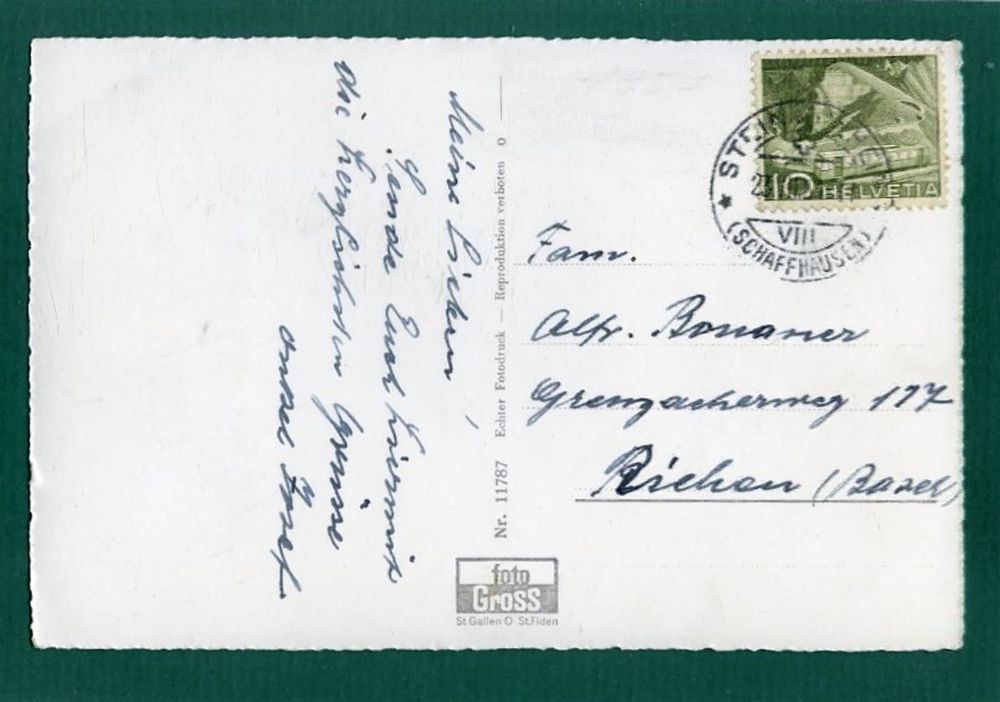 Meine Lieben,
Sende Euch hiermit
die herzlichsten Grüsse
Josef
Nr. 11787 Echter Fotodruck — Reproduktion verboten O
foto
Gross
St.Gallen O St.Fiden
10 HELVETIA
STEIN
VIII
(SCHAFFHAUSEN)
Fam.
Alfr. Bonauer
Grenzacherweg 177
Riehen (Basel)